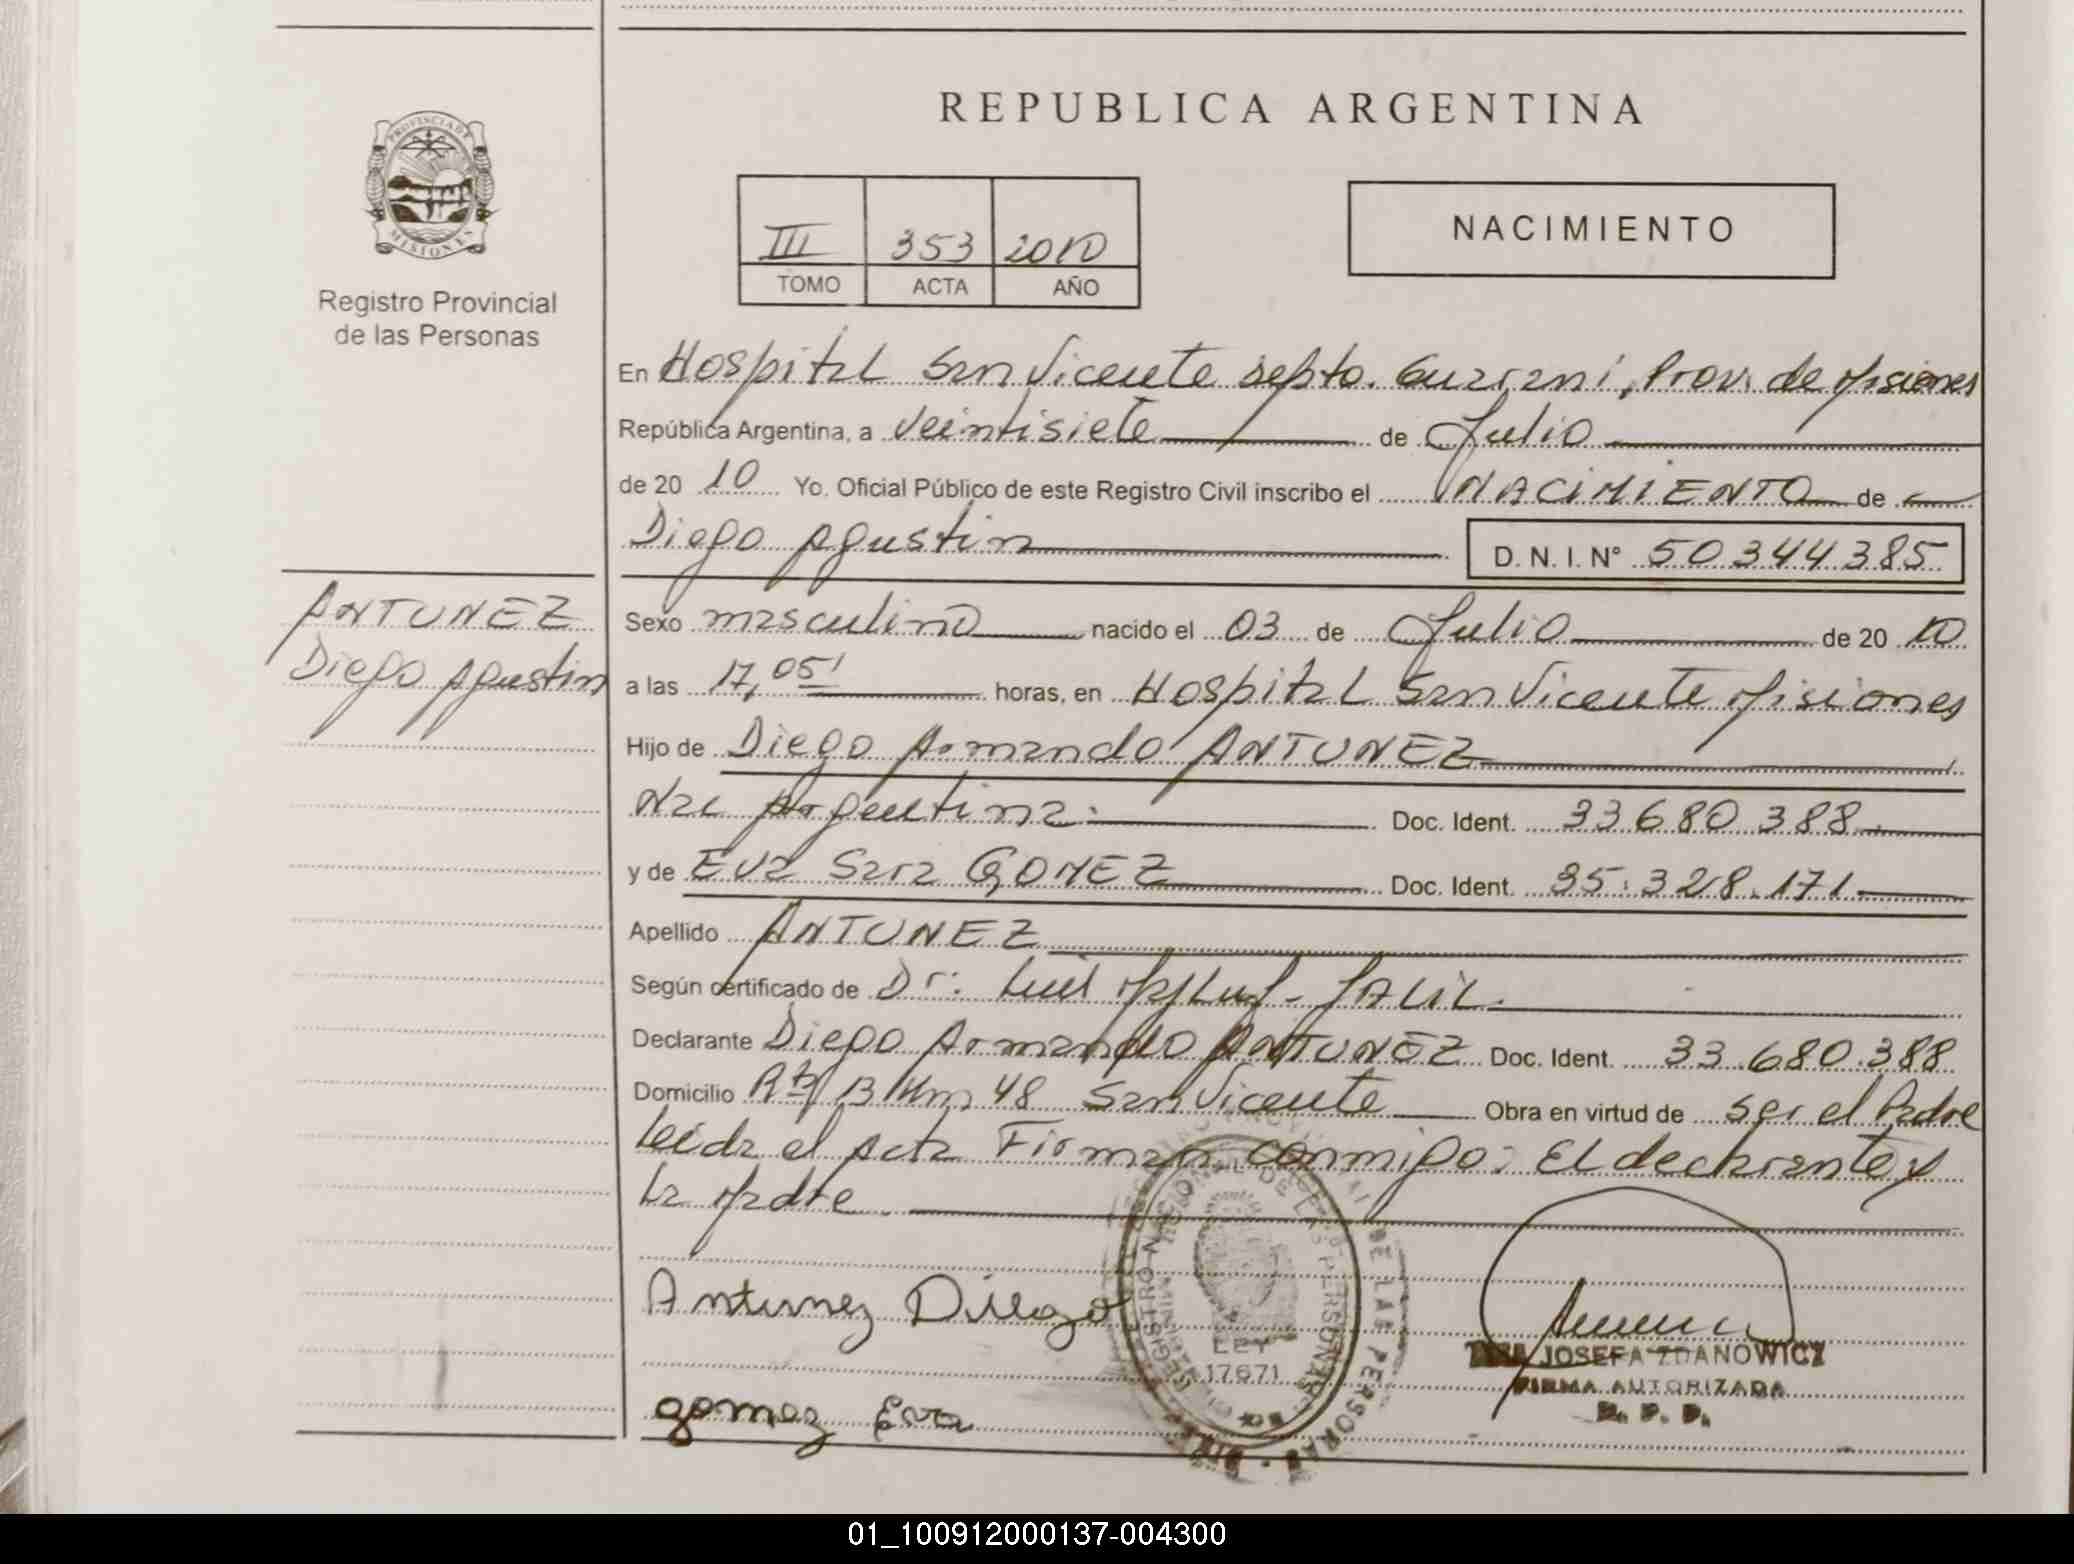 REPUBLICA ARGENTINA
PROVINCIA DE
MISIONES
Registro Provincial
de las Personas
III 353 2010
TOMO ACTA AÑO
NACIMIENTO
En Hospital San Vicente Depto. Guarani, Prov. de Misiones
República Argentina, a veintisiete de Julio
de 20 10 Yo. Oficial Público de este Registro Civil inscribo el NACIMIENTO de
Diego Agustin D. N. I. N° 50344385
ANTUNEZ
Diego Agustin
Sexo masculino nacido el 03 de Julio de 20 10
a las 17,05' horas, en Hospital San Vicente Misiones
Hijo de Diego Armando ANTUNEZ
Nac Argentina. Doc. Ident. 33680388
y de Eva Sara GOMEZ Doc. Ident. 35.328.171
Apellido ANTUNEZ
Según certificado de Dr: Luis JALIL.
Declarante Diego Armando ANTUNEZ Doc. Ident. 33.680.388
Domicilio Rta 13 Km 48 San Vicente Obra en virtud de ser el Padre
Leida el Acta Firman conmigo: El declarante y
La Madre
Antunez Diego
gomez Eva
REGISTRO NACIONAL DE LAS PERSONAS
LEY
17671
JOSEFA ZDANOWICZ
FIRMA AUTORIZADA
R. P. P.
01_100912000137-004300